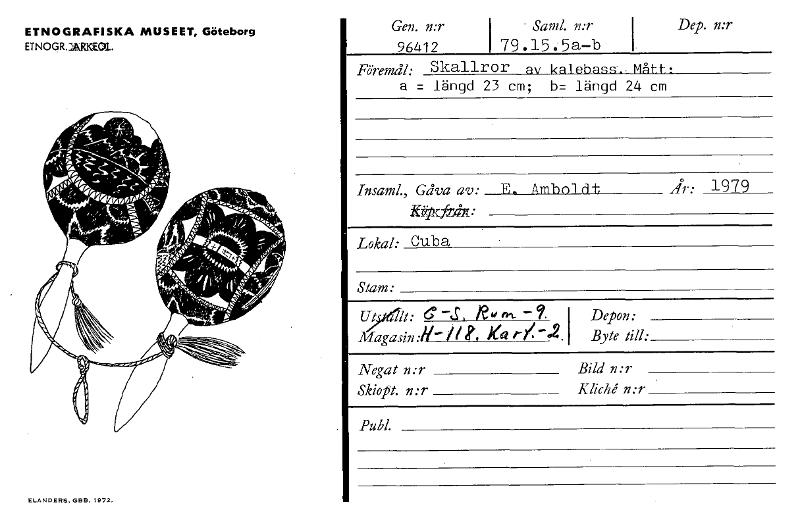 ETNOGRAFISKA MUSEET, Göteborg
ETNOGR. ARKEOL.
Gen. n:r Saml. n:r Dep. n:r
96412 79.15.5a-b
Föremål: Skallror av kalebass. Mått:
a = längd 23 cm; b= längd 24 cm
Insaml., Gåva av: E. Amboldt År: 1979
Köp från:
Lokal: Cuba
Stam:
Utställt: C-S. Rum-9. Depon:
Magasin: H-118. Kart.-2. Byte till:
Negat n:r Bild n:r
Skiopt. n:r Kliché n:r
Publ.
ELANDERS, GBG. 1972.